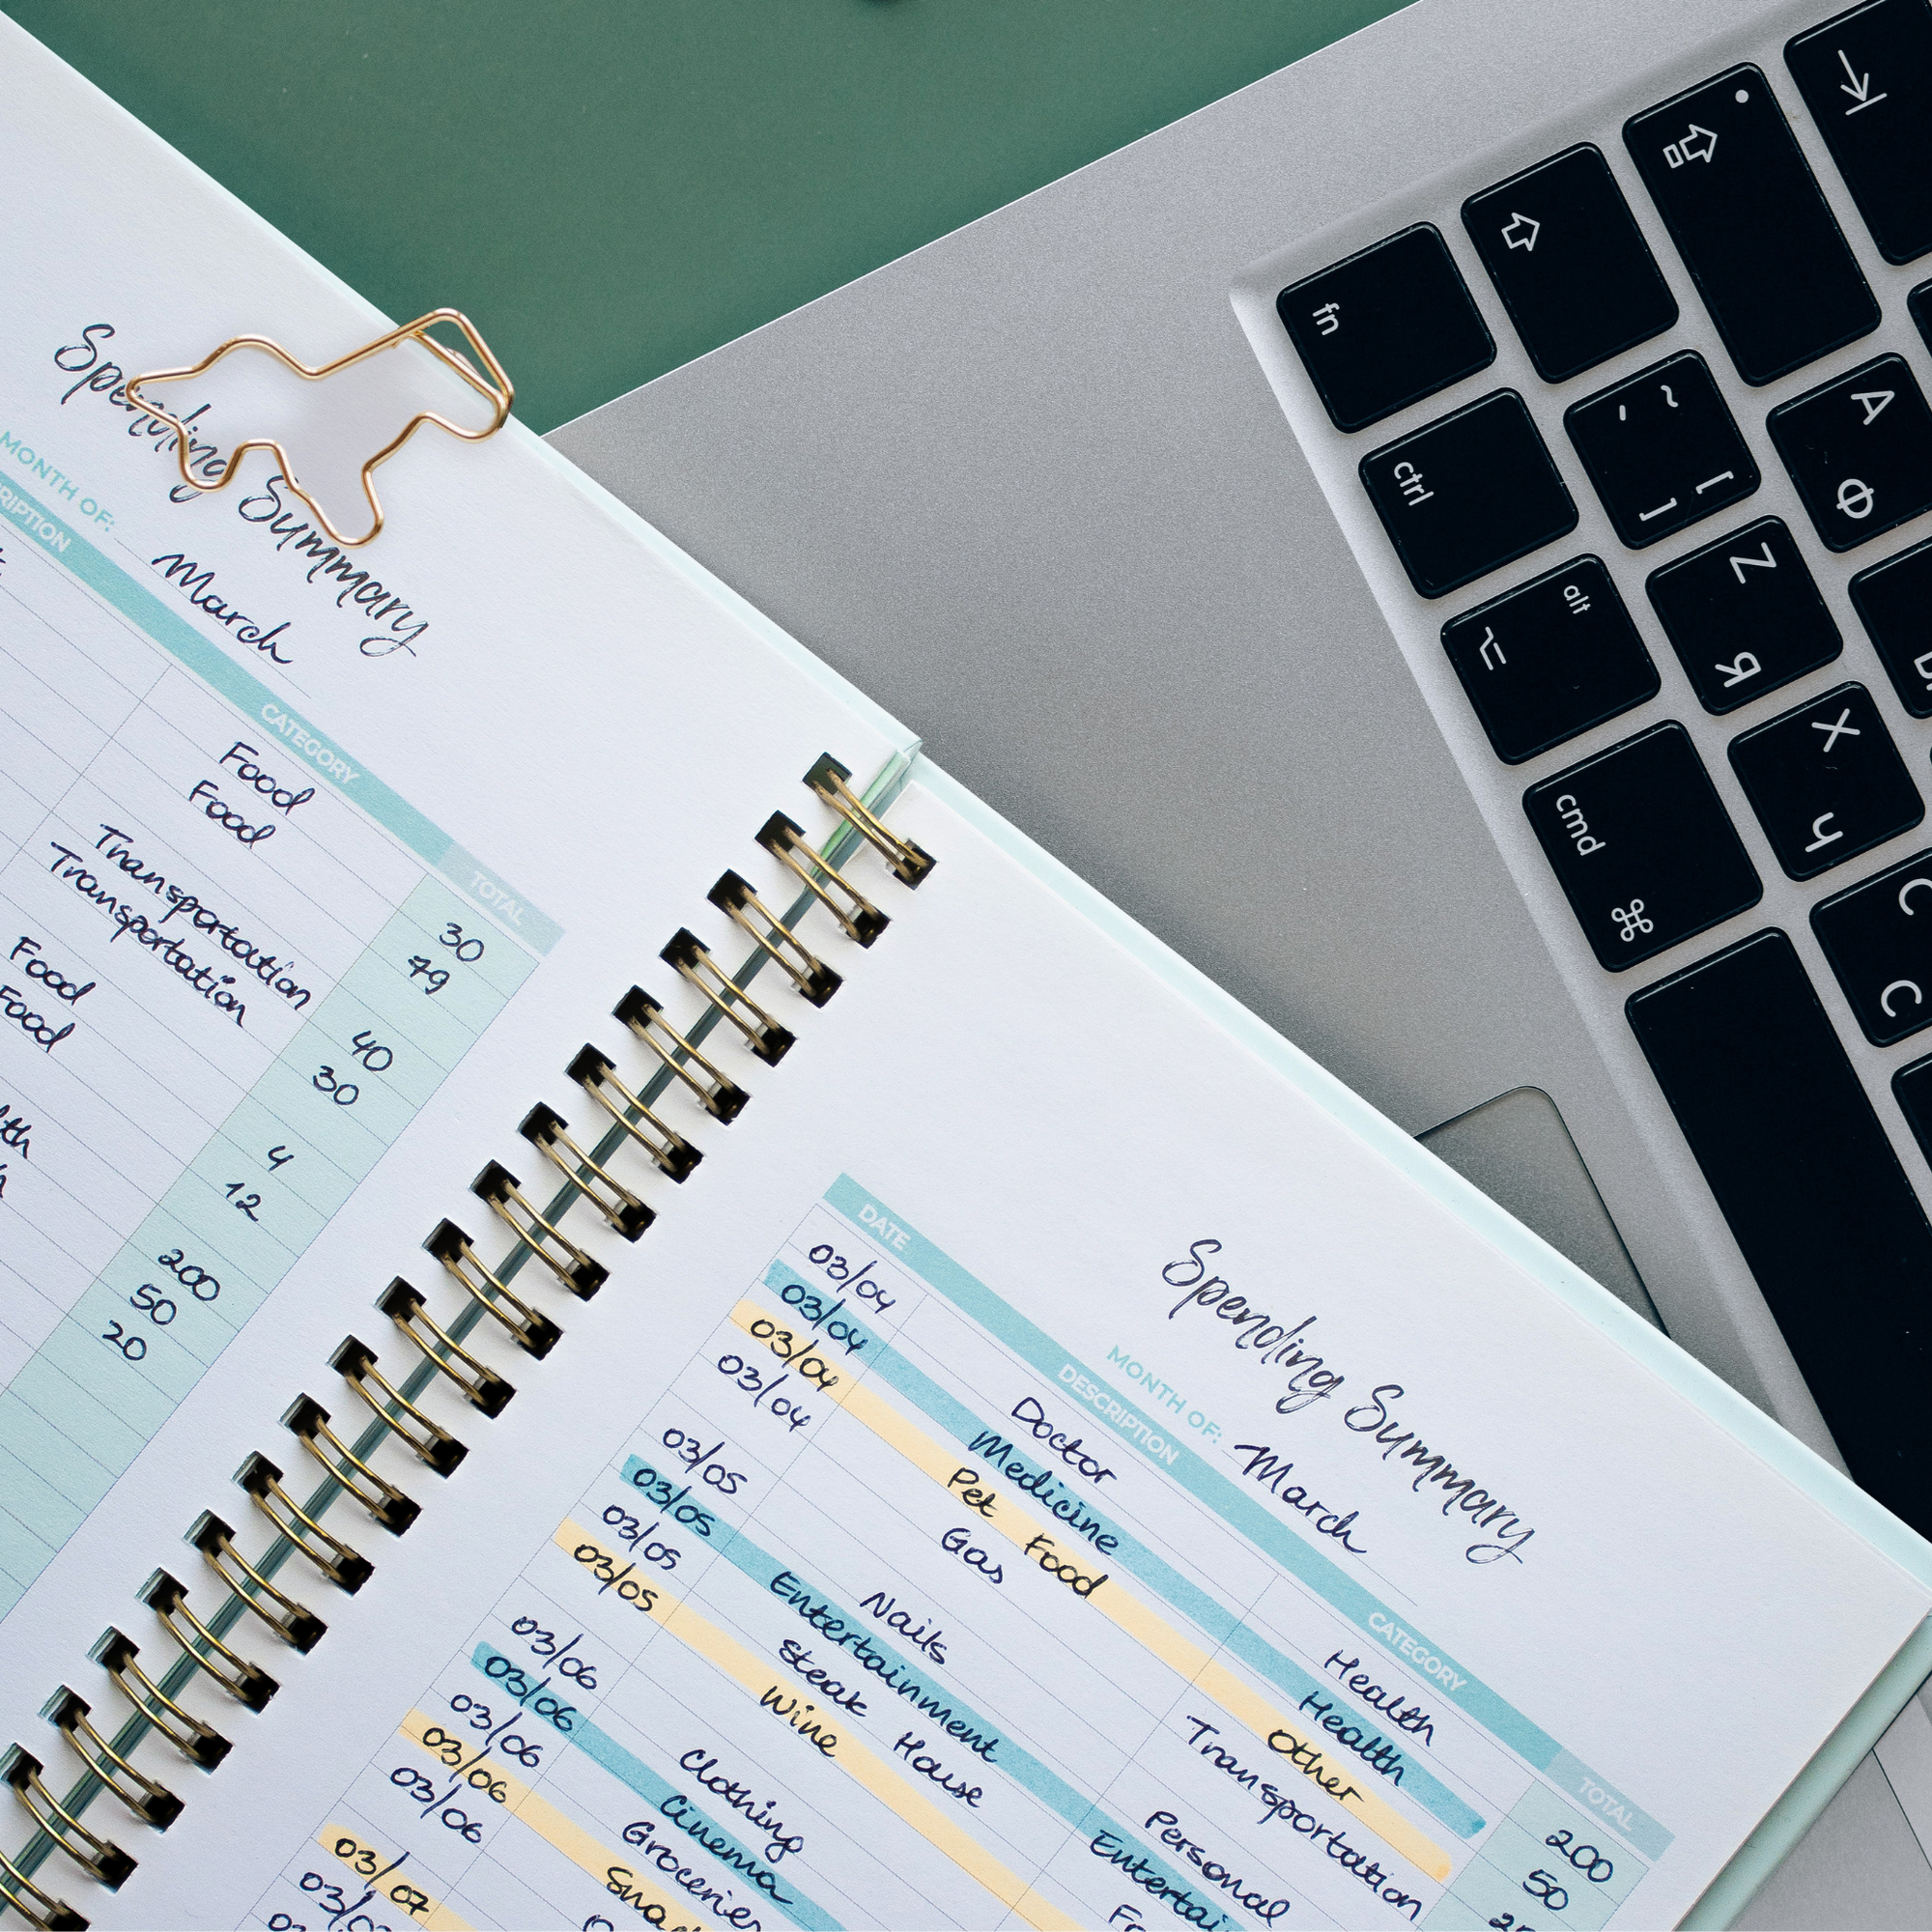 Spending Summary
MONTH OF: March
CATEGORY TOTAL
Food 30
Food 79
Transportation 40
Transportation 30
Food 4
Food 12
200
50
20
Spending Summary
MONTH OF: March
DATE DESCRIPTION CATEGORY TOTAL
03/04 Doctor Health 200
03/04 Medicine Health 50
03/04 Pet Food Other
03/04 Gas Transportation
03/05 Nails Personal
03/05 Entertainment
03/05 Steak House
03/05 Wine
03/06 Clothing
03/06 Cinema
03/06 Groceries
03/06
03/06
03/07
fn
ctrl
alt
cmd ⌘
~ '
[ ]
A Ф
Z Я
X Ч
C С